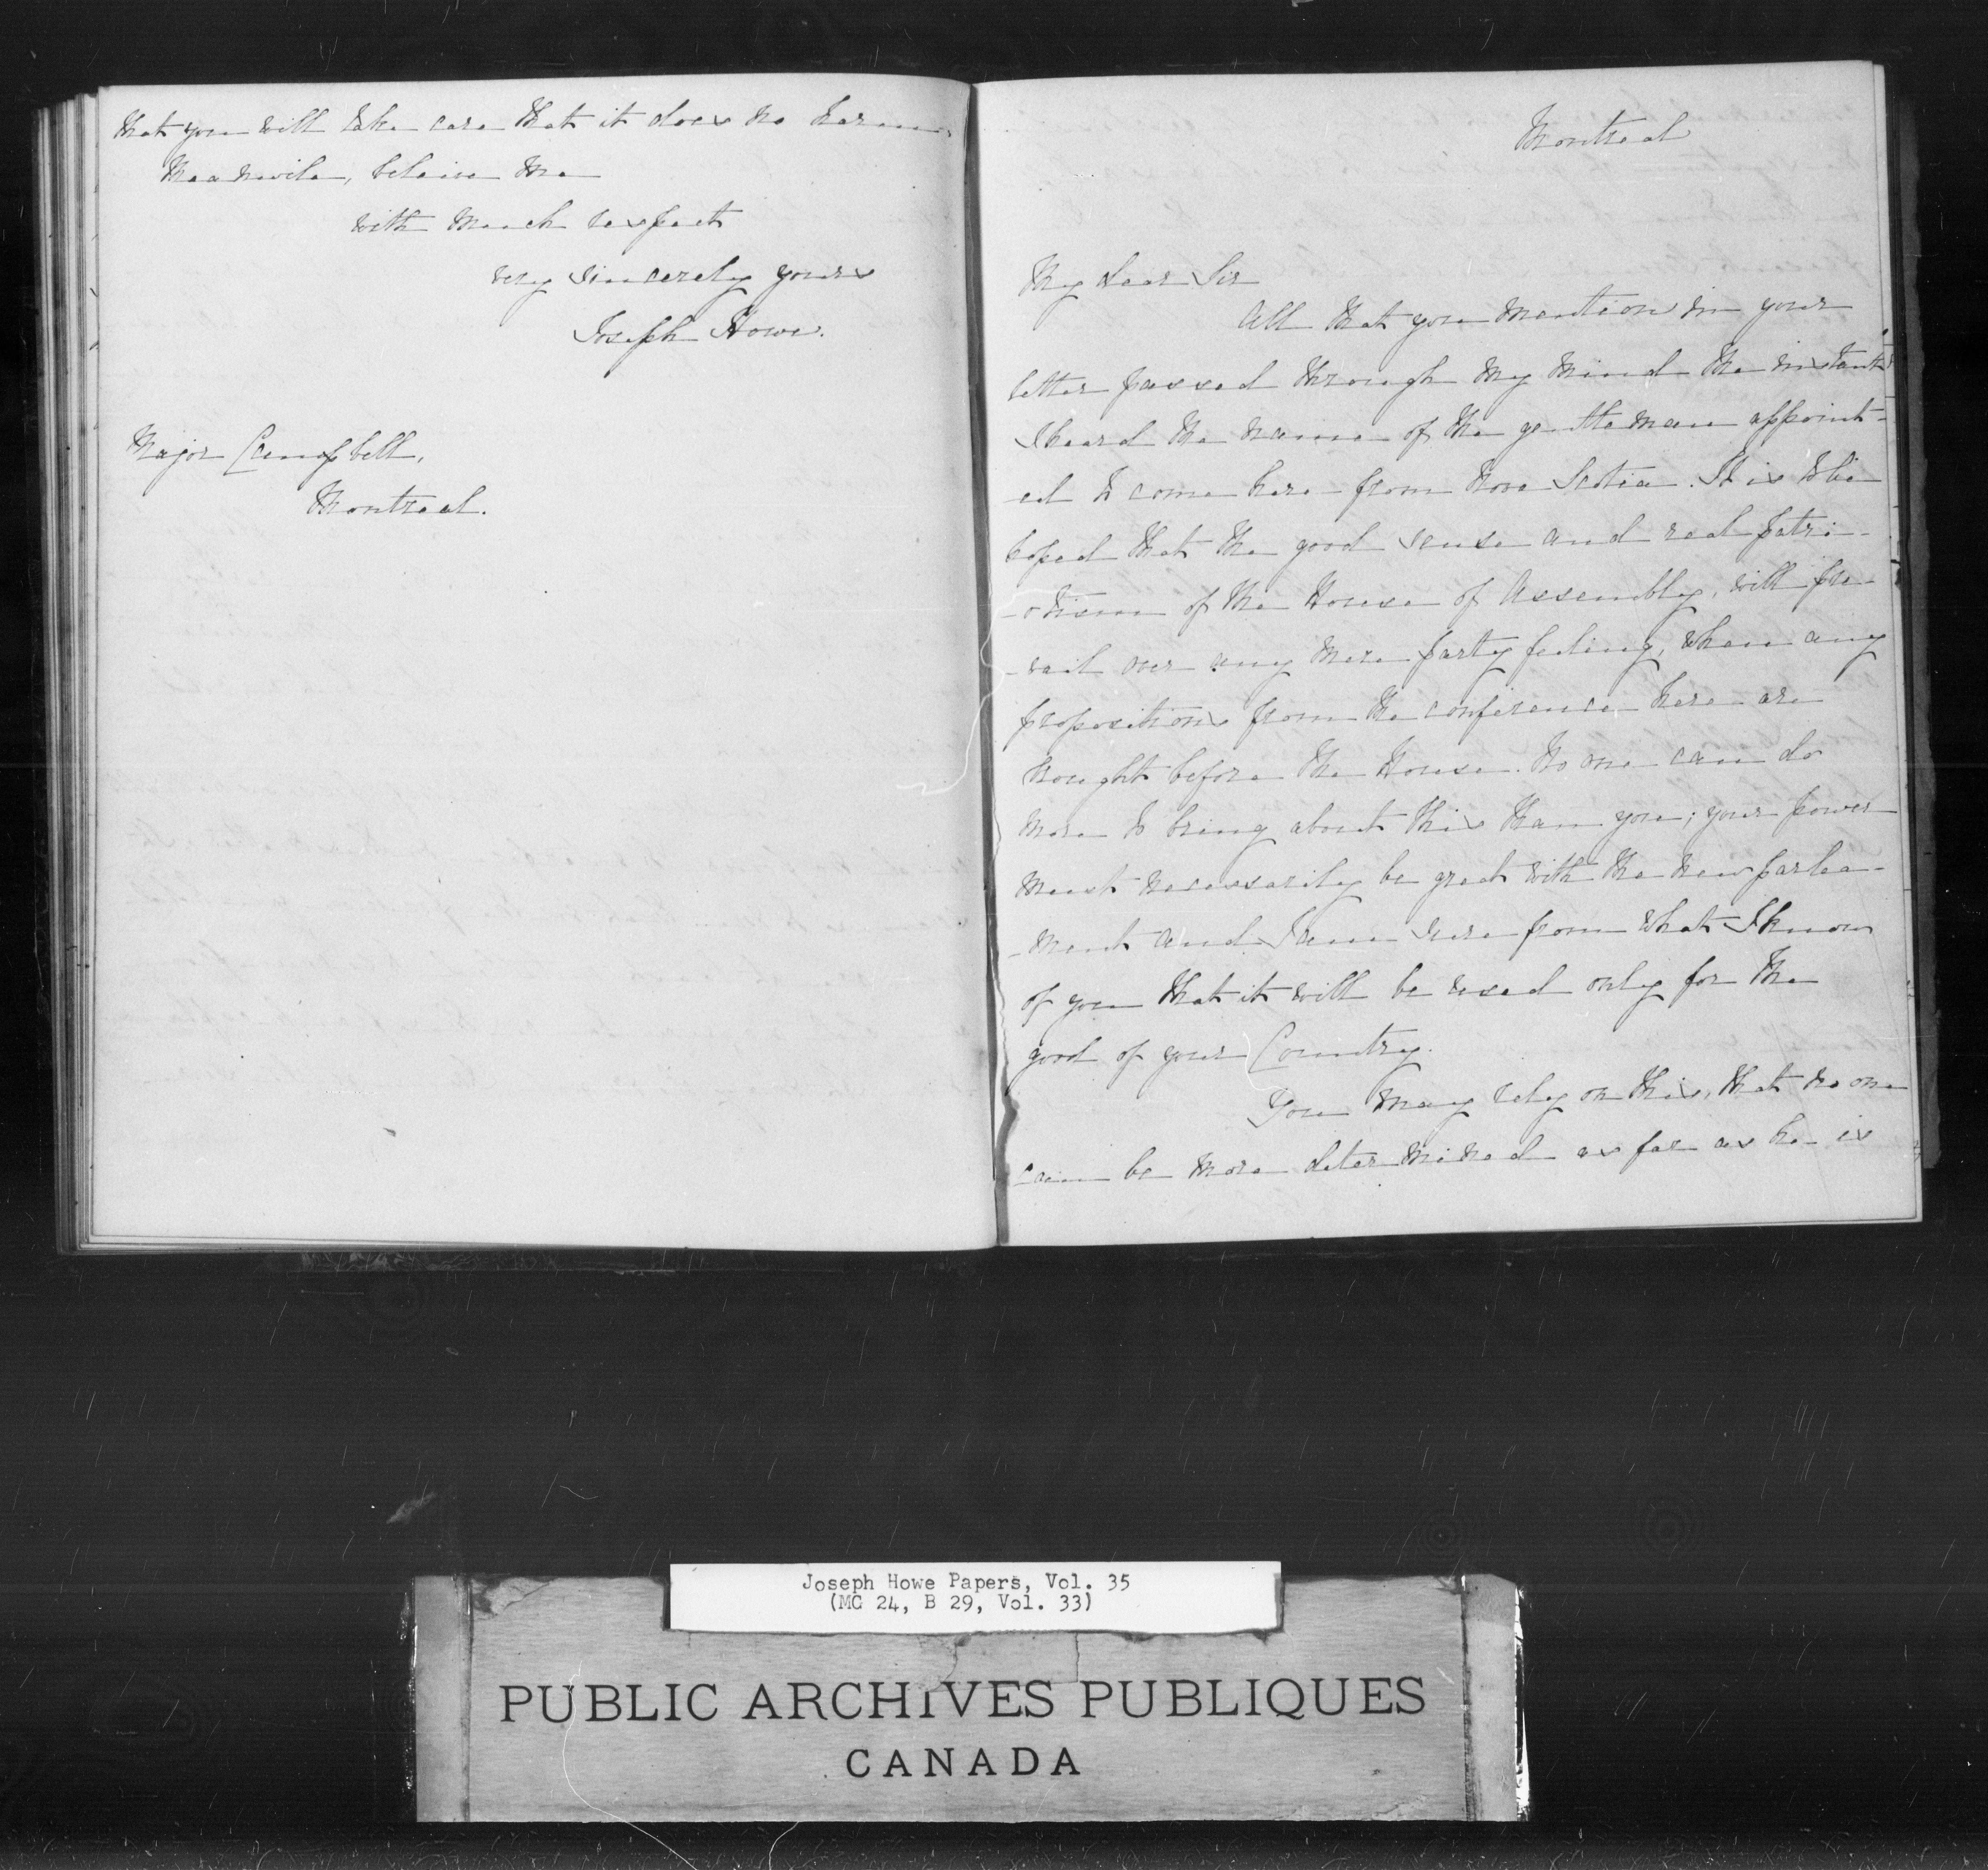 that you will take care that it does no harm.
Meanwile, beleive me
with much respect
very sincerely yours
Joseph Howe.
Major Campbell,
Montreal.
Montreal
My dear Sir
All that you mention in your
letter passed through my mind the instant
I heard the name of the gentleman appoint-
-ed to come here from Nova Scotia. It is to be
hoped that the good sense and real patri-
-otism of the House of Assembly, will pre-
-vail over any mere party feeling, when any
propositions from the conference here are
brought before the House. No one can do
more to bring about this than you; your power
must necessarily be great with the new parlea-
-ment and I am sure from what I know
of you that it will be used only for the
good of your Country.
You may rely on this, that no one
can be more determined as far as he is
Joseph Howe Papers, Vol. 35
(MG 24, B 29, Vol. 33)
PUBLIC ARCHIVES PUBLIQUES
CANADA